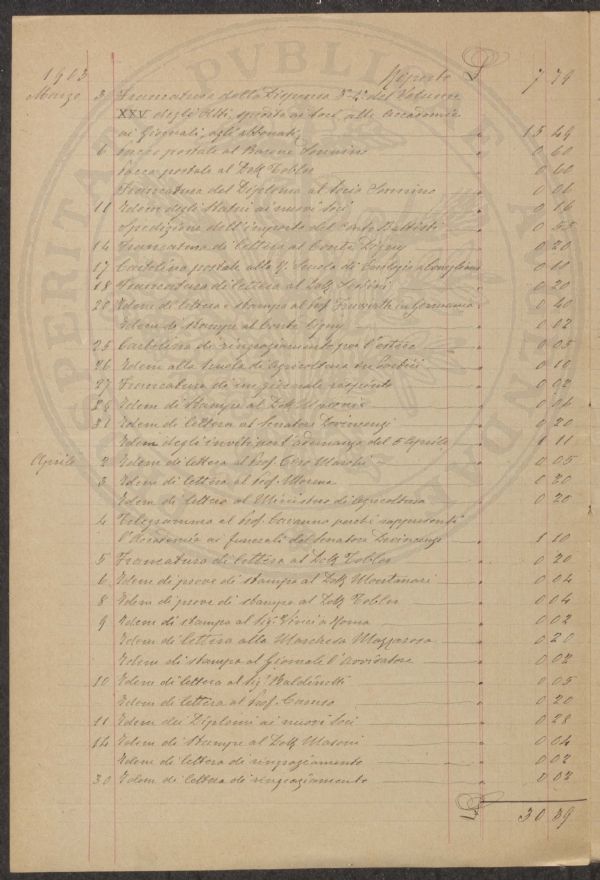 1903 Riporto L 7 79
Marzo 3 Francatura della Dispensa 3ª 4ª del Volume
XXV degli Atti, spedita ai Soci, alle Accademie
ai Giornali, agli abbonati " 15 49
6 pacco postale al Barone Sonnino " 0 60
pacco postale al Dott Tobler " 0 60
Francatura del Diploma al Socio Sonnino " 0 06
11 Idem degli Statuti ai nuovi Soci " 0 16
Spedizione dell'importo del conto Battisti " 0 55
14 Francatura di lettera al Conte Digny " 0 20
17 Cartolina postale alla R. Scuola di Enologia a Conegliano 0 10
18 Francatura di lettera al Dott " 0 20
20 Idem di lettera e stampa al Prof. in Germania " 0 40
Idem di stampe al Conte Digny " 0 02
25 Cartolina di ringraziamento per l'estero " 0 05
26 Idem alla Scuola di Agricoltura in Portici " 0 10
27 Francatura di un giornale respinto " 0 02
28 Idem di Stampe al Dott " 0 06
31 Idem di lettera al Senatore Devincenzi " 0 20
Idem degli inviti per l'adunanza del 5 Aprile " 1 11
Aprile 2 Idem di lettera al Prof. Ciro Marchi " 0 05
3 Idem di lettera al Prof. " 0 20
Idem di lettera al Ministero di Agricoltura " 0 20
4 Telegramma al Prof. perchè rappresenti
l'Accademia ai funerali del Senatore Devincenzi " 1 10
5 Francatura di lettera al Dott Tobler " 0 20
6 Idem di prove di stampa al Dott Montanari " 0 04
8 Idem di prove di stampa al Dott Tobler " 0 04
9 Idem di stampa al Sig. Vinci a Roma " 0 02
Idem di lettera alla Marchesa Mazzarosa " 0 20
Idem di stampa al Giornale l'Avvisatore " 0 02
10 Idem di lettera al Sig. Baldinotti " 0 05
Idem di lettera al Prof. Caruso " 0 20
11 Idem dei Diplomi ai nuovi Soci " 0 28
14 Idem di Stampe al Dott Masoni " 0 04
Idem di lettera di ringraziamento " 0 02
30 Idem di lettera di ringraziamento " 0 02
L 30 39